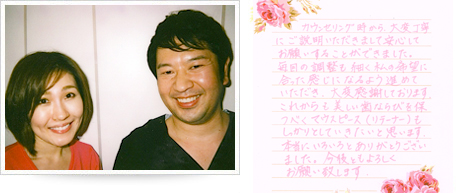 カウンセリング時から、大変丁寧
にご説明いただきまして安心して
お願いすることができました。
毎回の調整も細く私の希望に
合った感じになるよう進めて
いただき、大変感謝しております。
これからも美しい歯ならびを保
つべくマウスピース(リテーナー)も
しっかりとしていきたいと思います。
本当にいろいろとありがとうござい
ました。今後ともよろしく
お願い致します。